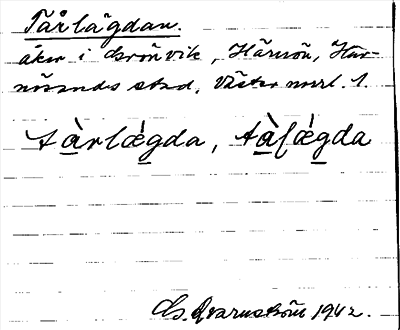 Tårlägdan.
åker i Grönvik, Härnön, Här-
nösands stad, Västernorrl. l.
tàrlǽgda, tàlǽgda
G. Qvarnström 1942.